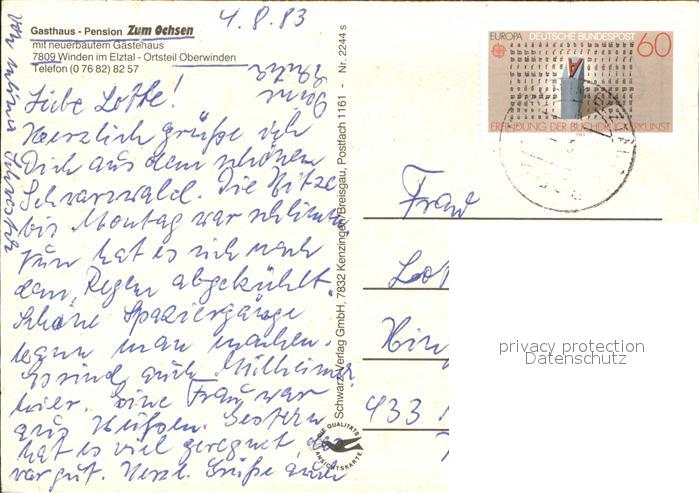 4.8.83
Gasthaus - Pension Zum Ochsen
mit neuerbautem Gästehaus
7809 Winden im Elztal - Ortsteil Oberwinden
Telefon (0 76 82) 82 57
Liebe Lotte!
Herzlich grüße ich
Dich aus dem schönen
Schwarzwald. Die Hitze
bis Montag war schlimm,
nun hat es sich nach
dem Regen abgekühlt.
Schöne Spaziergänge
kann man machen.
Es sind auch Mülheimer
hier. Eine Frau war
aus Heißen. Gestern
hat es viel geregnet, das
war gut. Herzl. Grüße auch
von meiner Schwester
Deine
Schwarz-Verlag GmbH, 7832 Kenzingen/Breisgau, Postfach 1161 - Nr. 2244 s
DIE QUALITÄTS
ANSICHTSKARTE
EUROPA DEUTSCHE BUNDESPOST 60
ERFINDUNG DER BUCHDRUCKERKUNST
1983
Frau
Lot
Hin
433
privacy protection
Datenschutz